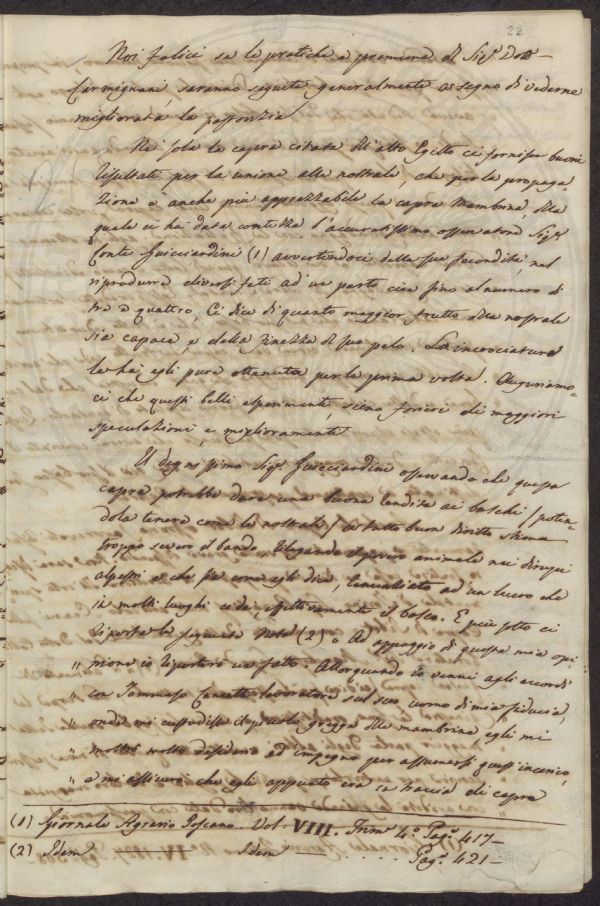 22
Noi felici se le pratiche e premure del Sig.r Dott.
Carmignani, saranno seguite generalmente a segno di vederne
migliorata la pastorizia
Ne solo la capra citata dell'alto Egitto ci fornisce buoni
resultati per la unione alle nostrali, che per la propaga-
zione è anche più apprezzabile la capra Mambrina, della
quale ci ha data contezza l'accuratissimo osservatore Sig.r
Conte Guicciardini (1) avvertendoci della sua fecondità, nel
riprodurre diversi feti ad un parto cioè fino al numero di
tre o quattro. Ci dice di quanto maggior frutto della nostrale
sia capace, e della finezza di suo pelo. La incrociatura
la ha egli pure ottenuta per la prima volta. Auguriamo-
ci che questi belli esperimenti, sieno forieri di maggiori
speculazioni, e miglioramenti
Il degnissimo Sig.r Guicciardini osservando che questa
capra potrebbe dare una buona rendita ai boschi / poten-
dola tenere come le nostrali / a tutto buon diritto
troppo severo il bando, relegando il povero animale nei dirupi
alpestri, e che sia come egli dice, ad un lucro che
in molti luoghi cede, effettivamente il bosco. E più sotto ci
riporta la seguente Nota (2) " Ad appoggio di questa mia opi-
" nione io riporterò un fatto. Allorquando io venni agli accordi
" con Tommaso lavoratore sul suo, uomo di mia fiducia,
" onde mi custodisse il piccolo gregge delle mambrine egli mi
" mostrò molto desiderio ed impegno per assumersi quest'incarico,
" e mi assicurò che egli appunto era in traccia di capre
(1) Giornale Agrario Toscano. Vol. VIII. Trim. 4.º Pag.a 417 –
(2) Idem Idem – . . . . Pag.a 421 –